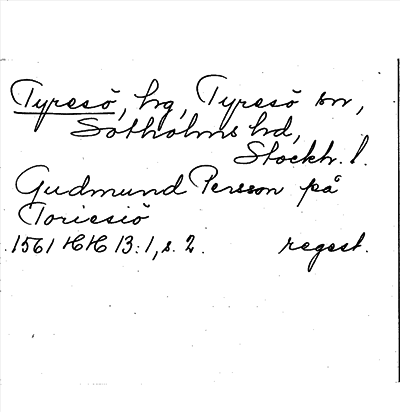 Tyresö, hg, Tyresö sn,
Sotholms hd,
Stockh. l.
Gudmund Persson på
Toriesiö
1561 HH 13:1, s. 2. regest.